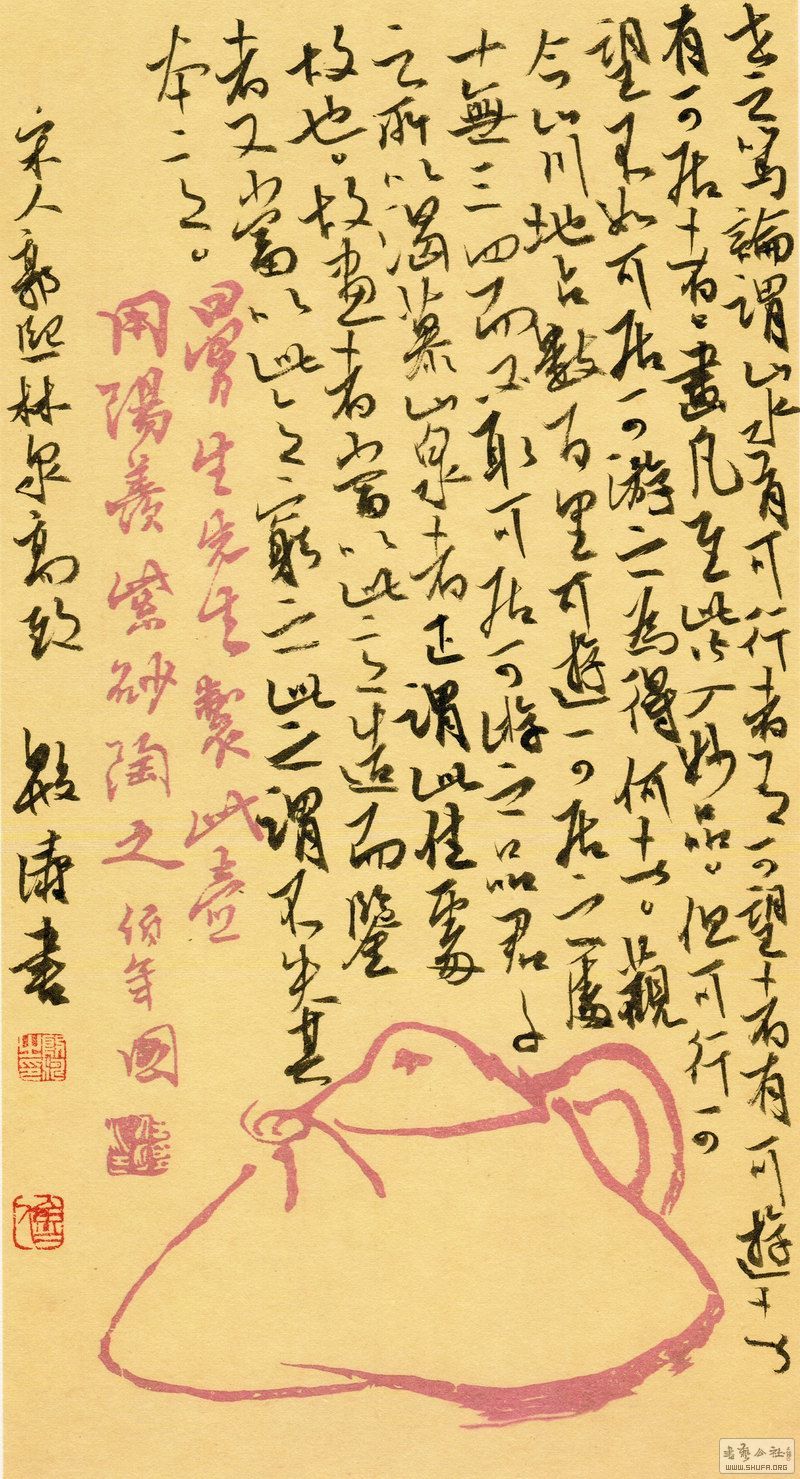 世之篤論謂山水有可行者有可望者有可遊者
有可居者畫凡至此皆入妙品。但可行可
望不如可居可游之為得何者。觀
今山川地占數百里可遊可居之處
十無三四而必取可居可游之品君子
之所以渴慕山泉者正謂此佳處
故也。故畫者當以此意造而鑒
者又當以此意窮之此之謂不失其
本意。
曼生先生製此壺
用陽羨紫砂陶之 伯年圖
宋人郭熙林泉高致 殷濤書
書藝公社
WWW.SHUFA.ORG